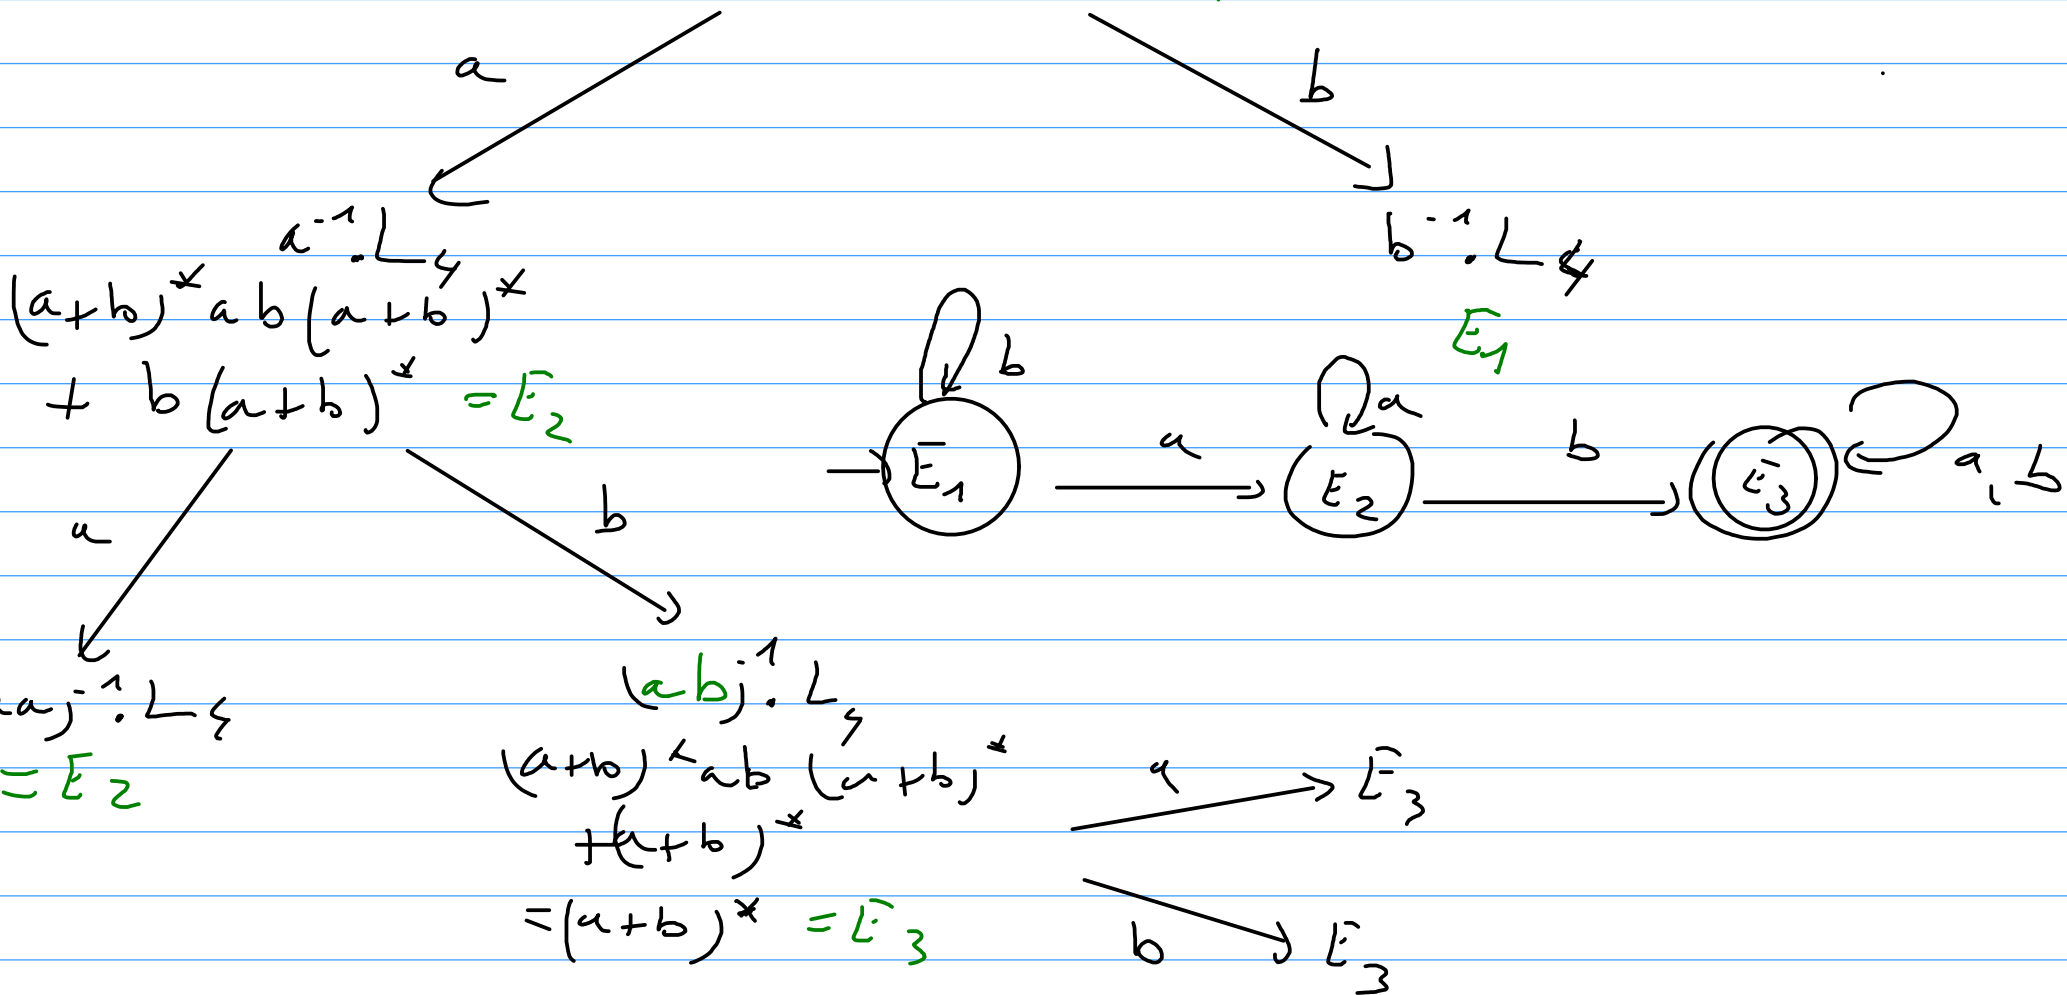 a
b
a⁻¹.L₄
(a+b)*ab(a+b)*
+ b(a+b)* = E₂
b⁻¹.L₄
E₁
b
a
E₁
a
E₂
b
E₃
a, b
a
b
a)⁻¹.L₄
= E₂
(ab)⁻¹.L₄
(a+b)*ab(a+b)*
+(a+b)*
=(a+b)* = E₃
a
E₃
b
E₃